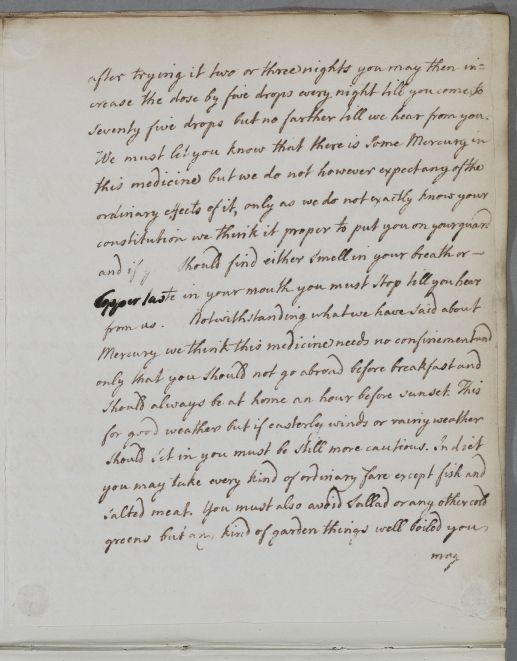 after trying it two or three nights you may then in=
crease the dose by five drops every night till you come to
Seventy five drops but no farther till we hear from you.
We must let you know that there is Some Mercury in
this medicine but we do not however expect any of the
ordinary effects of it, only as we do not exactly know your
constitution we think it proper to put you on your guard
and if should find either Smell in your breath or —
Copper taste in your mouth you must Stop till you hear
from us. Notwithstanding what we have Said about
Mercury we think this medicine needs no confinement and
only that you Should not go abroad before breakfast and
Should always be at home an hour before sunset. This
for good weather but if easterly winds or rainy weather
Should Set in you must be Still more cautious. In diet
you may take every kind of ordinary fare except fish and
Salted meat. You must also avoid Sallad or any other cold
greens but any kind of garden things well boiled you
may